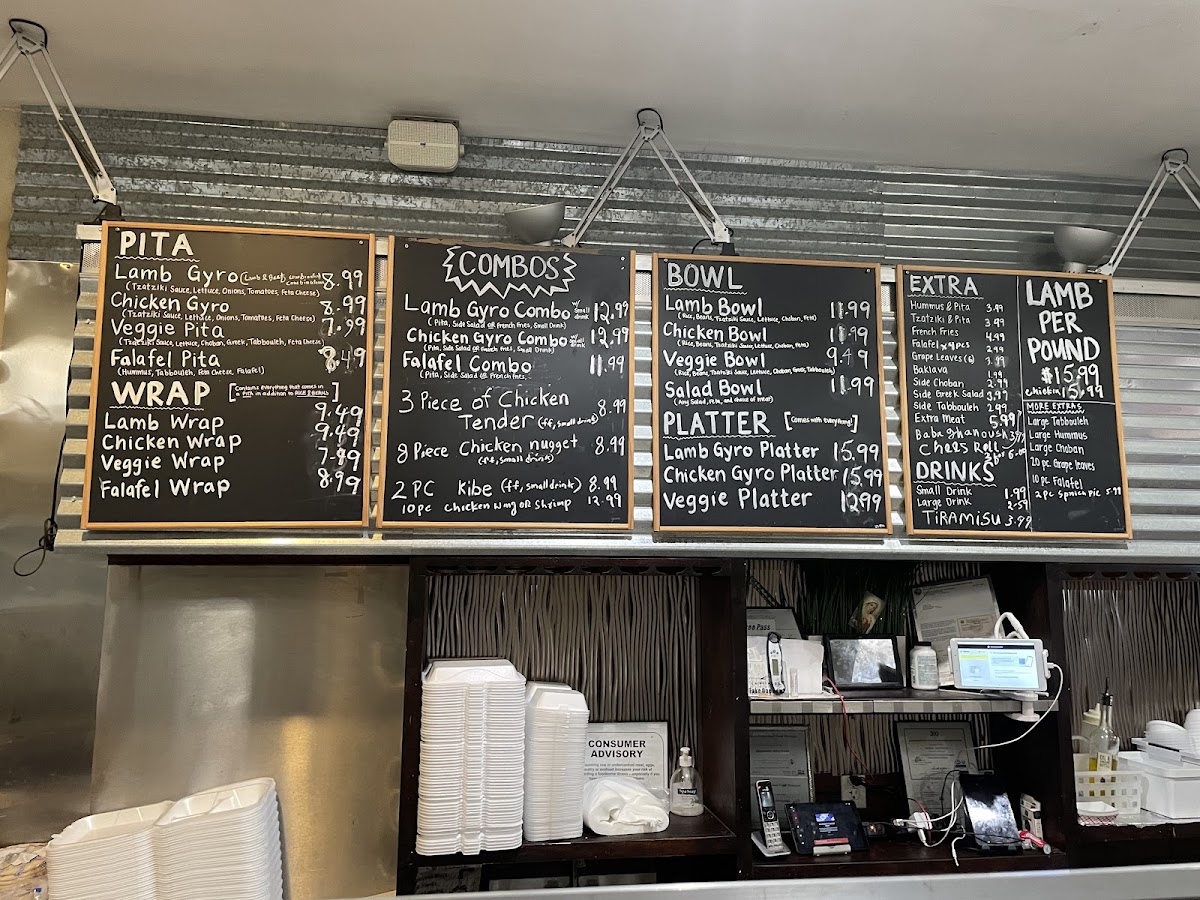 PITA
Lamb Gyro (Lamb & Beef combination) 8.99
(Tzatziki Sauce, Lettuce, Onions, Tomatoes, Feta Cheese)
Chicken Gyro 8.99
(Tzatziki Sauce, Lettuce, Onions, Tomatoes, Feta Cheese)
Veggie Pita 7.99
(Tzatziki Sauce, Lettuce, Choban, Greek, Tabbouleh, Feta Cheese)
Falafel Pita 8.49
(Hummus, Tabbouleh, Feta Cheese, Falafel)
WRAP [Contains everything that comes in
a PITA in addition to RICE & BEANS]
Lamb Wrap 9.49
Chicken Wrap 9.49
Veggie Wrap 7.99
Falafel Wrap 8.99
COMBOS
Lamb Gyro Combo w/ small drink 12.99
(Pita, Side Salad OR French fries, Small Drink)
Chicken Gyro Combo small drink 12.99
(Pita, Side Salad OR French fries, Small Drink)
Falafel Combo 11.99
(Pita, Side Salad OR French fries,
3 Piece of Chicken
Tender (ff, small drink) 8.99
8 Piece Chicken nugget 8.99
(ff, small drink)
2 PC Kibe (ff, small drink) 8.99
10 pc chicken wing OR Shrimp 12.99
BOWL
Lamb Bowl 11.99
(Rice, Beans, Tzatziki Sauce, Lettuce, Choban, Feta)
Chicken Bowl 11.49
(Rice, Beans, Tzatziki Sauce, Lettuce, Choban, Feta)
Veggie Bowl 9.49
(Rice, Beans, Tzatziki Sauce, Lettuce, Choban, Greek, Tabbouleh)
Salad Bowl 11.99
(Any Salad, Pita, and choice of meat)
PLATTER [Comes with everything!]
Lamb Gyro Platter 15.99
Chicken Gyro Platter 15.99
Veggie Platter 12.99
EXTRA
Hummus & Pita 3.99
Tzatziki & Pita 3.99
French Fries 4.99
Falafel x4pcs 2.99
Grape Leaves (6) 3.99
Baklava 1.99
Side Choban 2.99
Side Greek Salad 3.99
Side Tabbouleh 2.99
Extra Meat 5.99
Baba ghanoush 3.99
Chees Roll
DRINKS
Small Drink 1.99
Large Drink 2.59
TIRAMISU 3.99
LAMB
PER
POUND
$15.99
chicken 15.99
MORE EXTRAS
Large Tabbouleh
Large Hummus
Large Choban
20 pc Grape leaves
10 pc Falafel
2 pc Spnich Pie 5.99
CONSUMER
ADVISORY